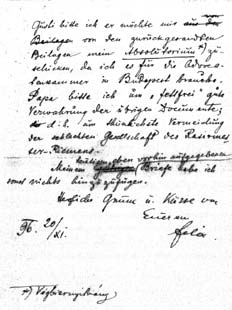 Gusti bitte ich er möchte mir aus den
Beilagen von den zurückgesandten
Beilagen mein Absolutorium *) zu-
schicken, da ich es für die Advo-
katenkammer in Budapest brauche.
Papa bitte ich um „fettfrei" gute
Verwahrung der übrigen Documente,
d. h. um thunlichste Vermeidung
der Gesellschaft des Rasirmes-
ser-Riemens.
heutigen, eben vorhin aufgegebenen
Meinem Briefe habe ich
sonst nichts hinzuzufügen.
Herzliche Grüsse u. Küsse von
Eurem
20/XI.
*) Végbizonyítvány